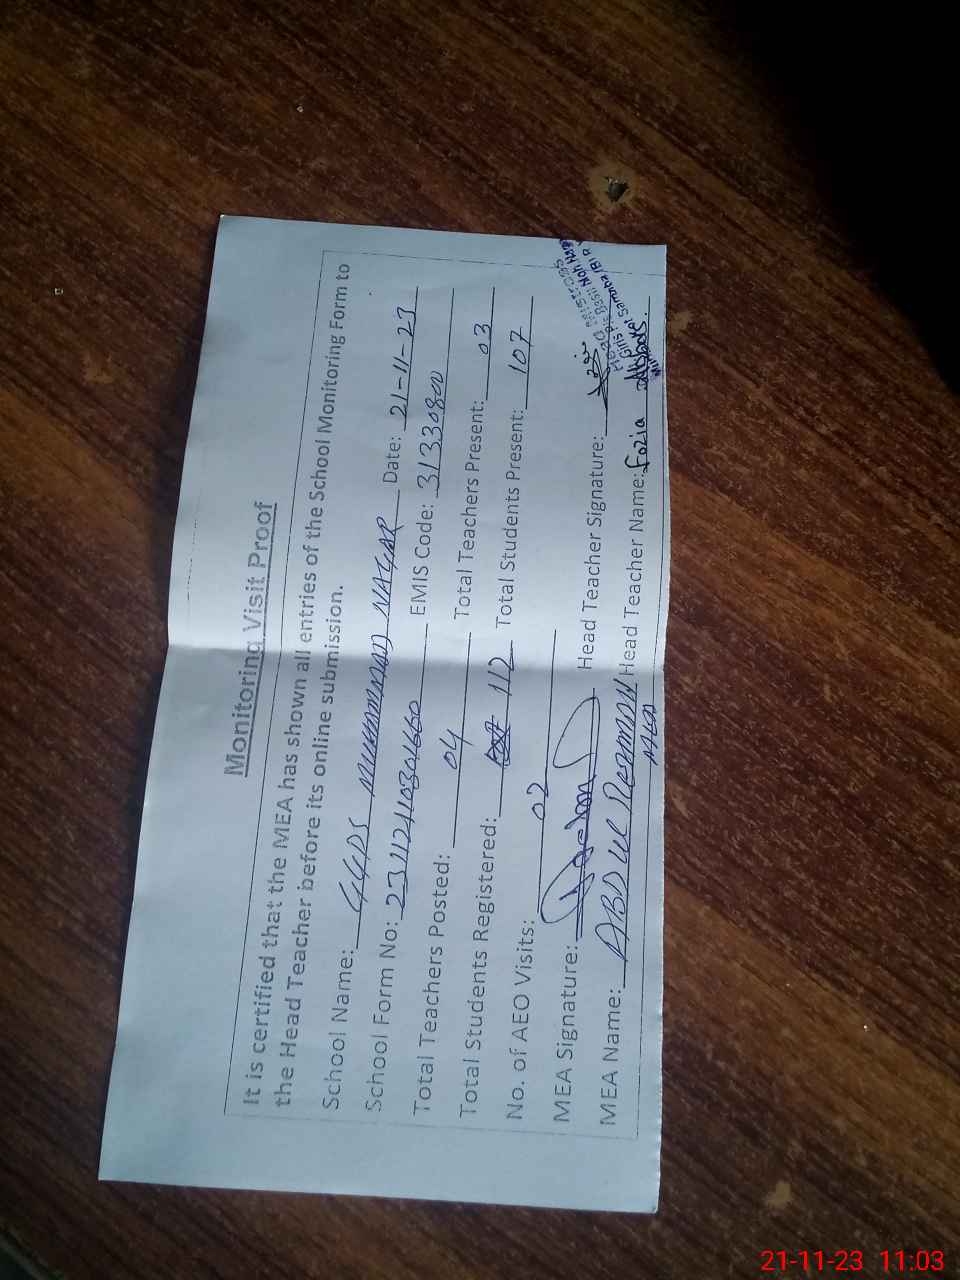 Monitoring Visit Proof
It is certified that the MEA has shown all entries of the School Monitoring Form to
the Head Teacher before its online submission.
School Name: GGPS MUHAMMAD NAGAR Date: 21-11-23
School Form No: EMIS Code: 31330800
Total Teachers Posted: 04 Total Teachers Present: 03
Total Students Registered: 112 Total Students Present: 107
No. of AEO Visits: 02
MEA Signature: Head Teacher Signature:
MEA Name: ABDUL REHMAN Head Teacher Name: Fozia
Head
21-11-23 11:03